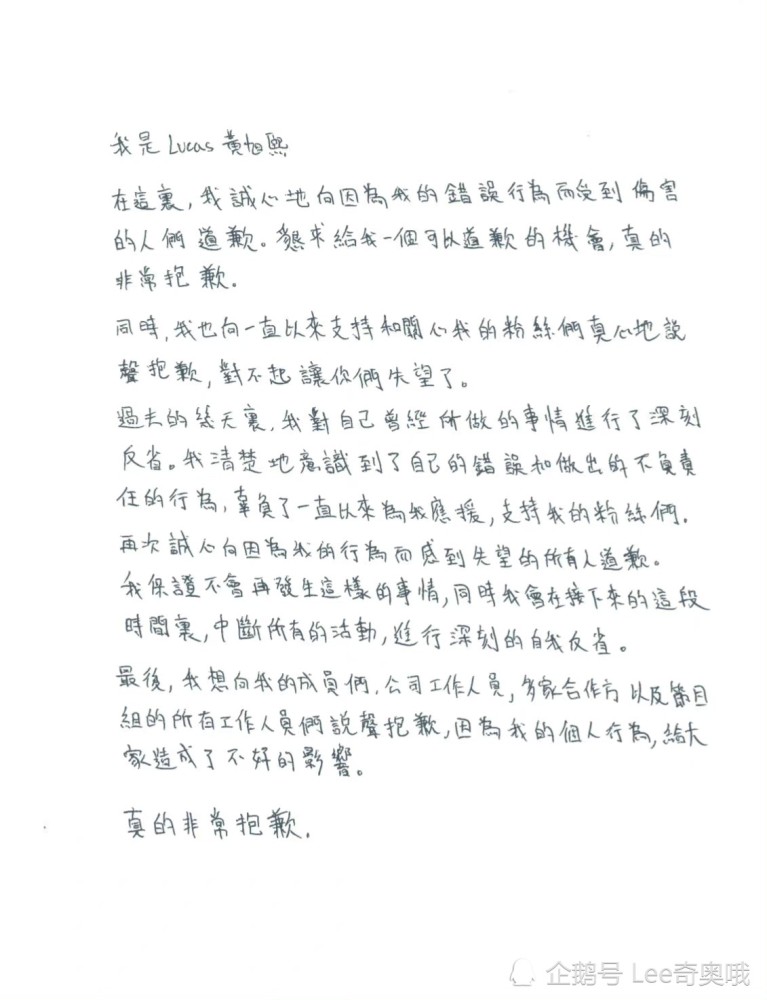 我是 Lucas 黃旭熙
在這裏，我誠心地向因為我的錯誤行為而受到 傷害
的人們道歉。懇求給我一個可以道歉的機會，真的
非常抱歉.
同時，我也向一直以來支持和關心我的粉絲們真心地說
聲抱歉，對不起讓你們失望了。
過去的幾天裏，我對自己曾經所做的事情進行了深刻
反省。我清楚地意識到了自己的錯誤和做出的不負責
任的行為，辜負了一直以來為我應援，支持我的粉絲們.
再次誠心向因為我的行為而感到失望的所有人道歉。
我保證不會再發生這樣的事情，同時我會在接下來的這段
時間裏，中斷所有的活動，進行深刻的自我反省。
最後，我想向我的成員們.公司工作人員，多家合作方以及節目
組的所有工作人員們說聲抱歉，因為我的個人行為，給大
家造成了不好的影響。
真的非常抱歉.
企鹅号 Lee奇奥哦